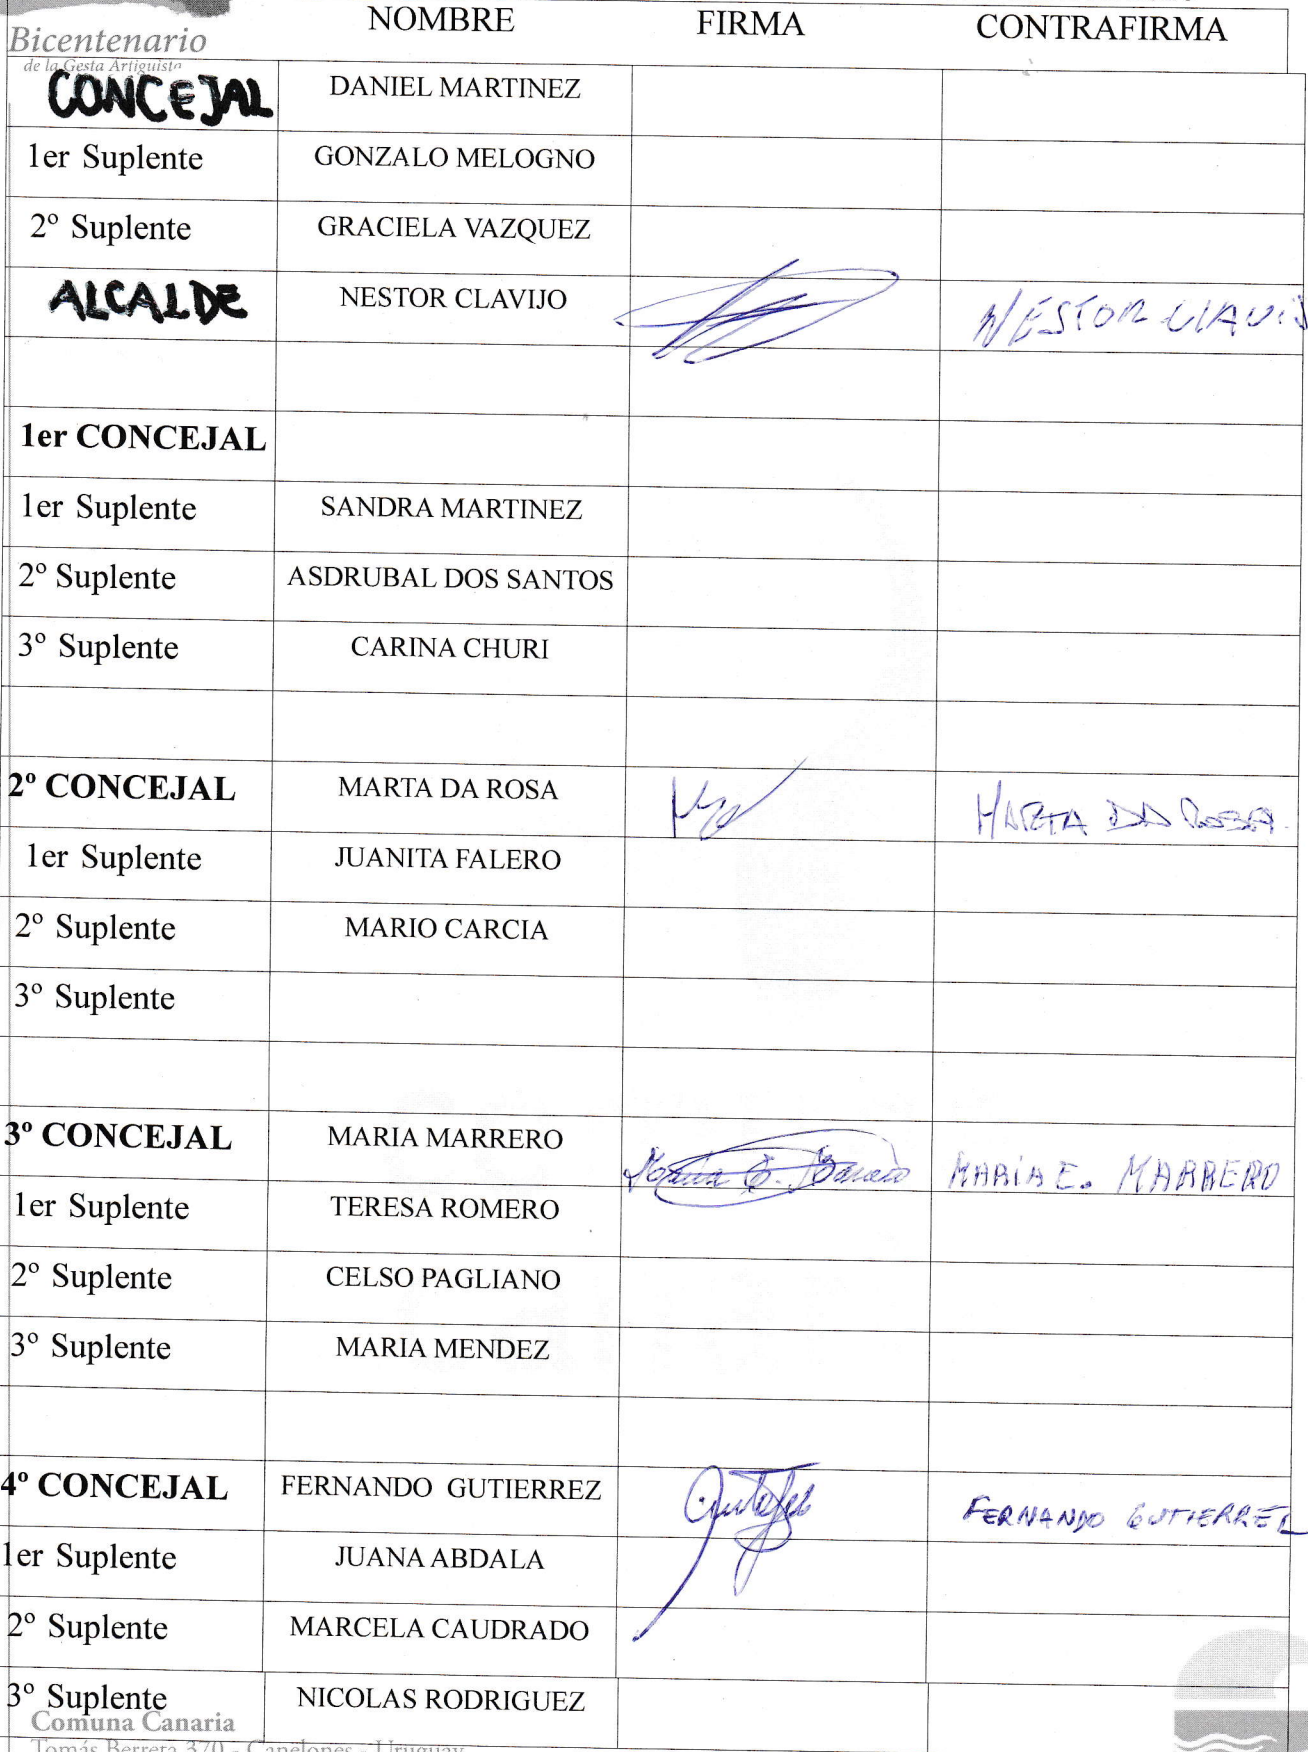 NOMBRE FIRMA CONTRAFIRMA
Bicentenario
de la Gesta Artiguista
CONCEJAL DANIEL MARTINEZ
1er Suplente GONZALO MELOGNO
2º Suplente GRACIELA VAZQUEZ
ALCALDE NESTOR CLAVIJO NESTOR CLAVIJ
1er CONCEJAL
1er Suplente SANDRA MARTINEZ
2º Suplente ASDRUBAL DOS SANTOS
3º Suplente CARINA CHURI
2º CONCEJAL MARTA DA ROSA MARTA DA ROSA.
1er Suplente JUANITA FALERO
2º Suplente MARIO CARCIA
3º Suplente
3º CONCEJAL MARIA MARRERO Maria E. Marrero MARÍA E. MARRERO
1er Suplente TERESA ROMERO
2º Suplente CELSO PAGLIANO
3º Suplente MARIA MENDEZ
4º CONCEJAL FERNANDO GUTIERREZ FERNANDO GUTIERREZ
1er Suplente JUANA ABDALA
2º Suplente MARCELA CAUDRADO
3º Suplente NICOLAS RODRIGUEZ
Comuna Canaria
Tomás Berreta 370 - Canelones - Uruguay